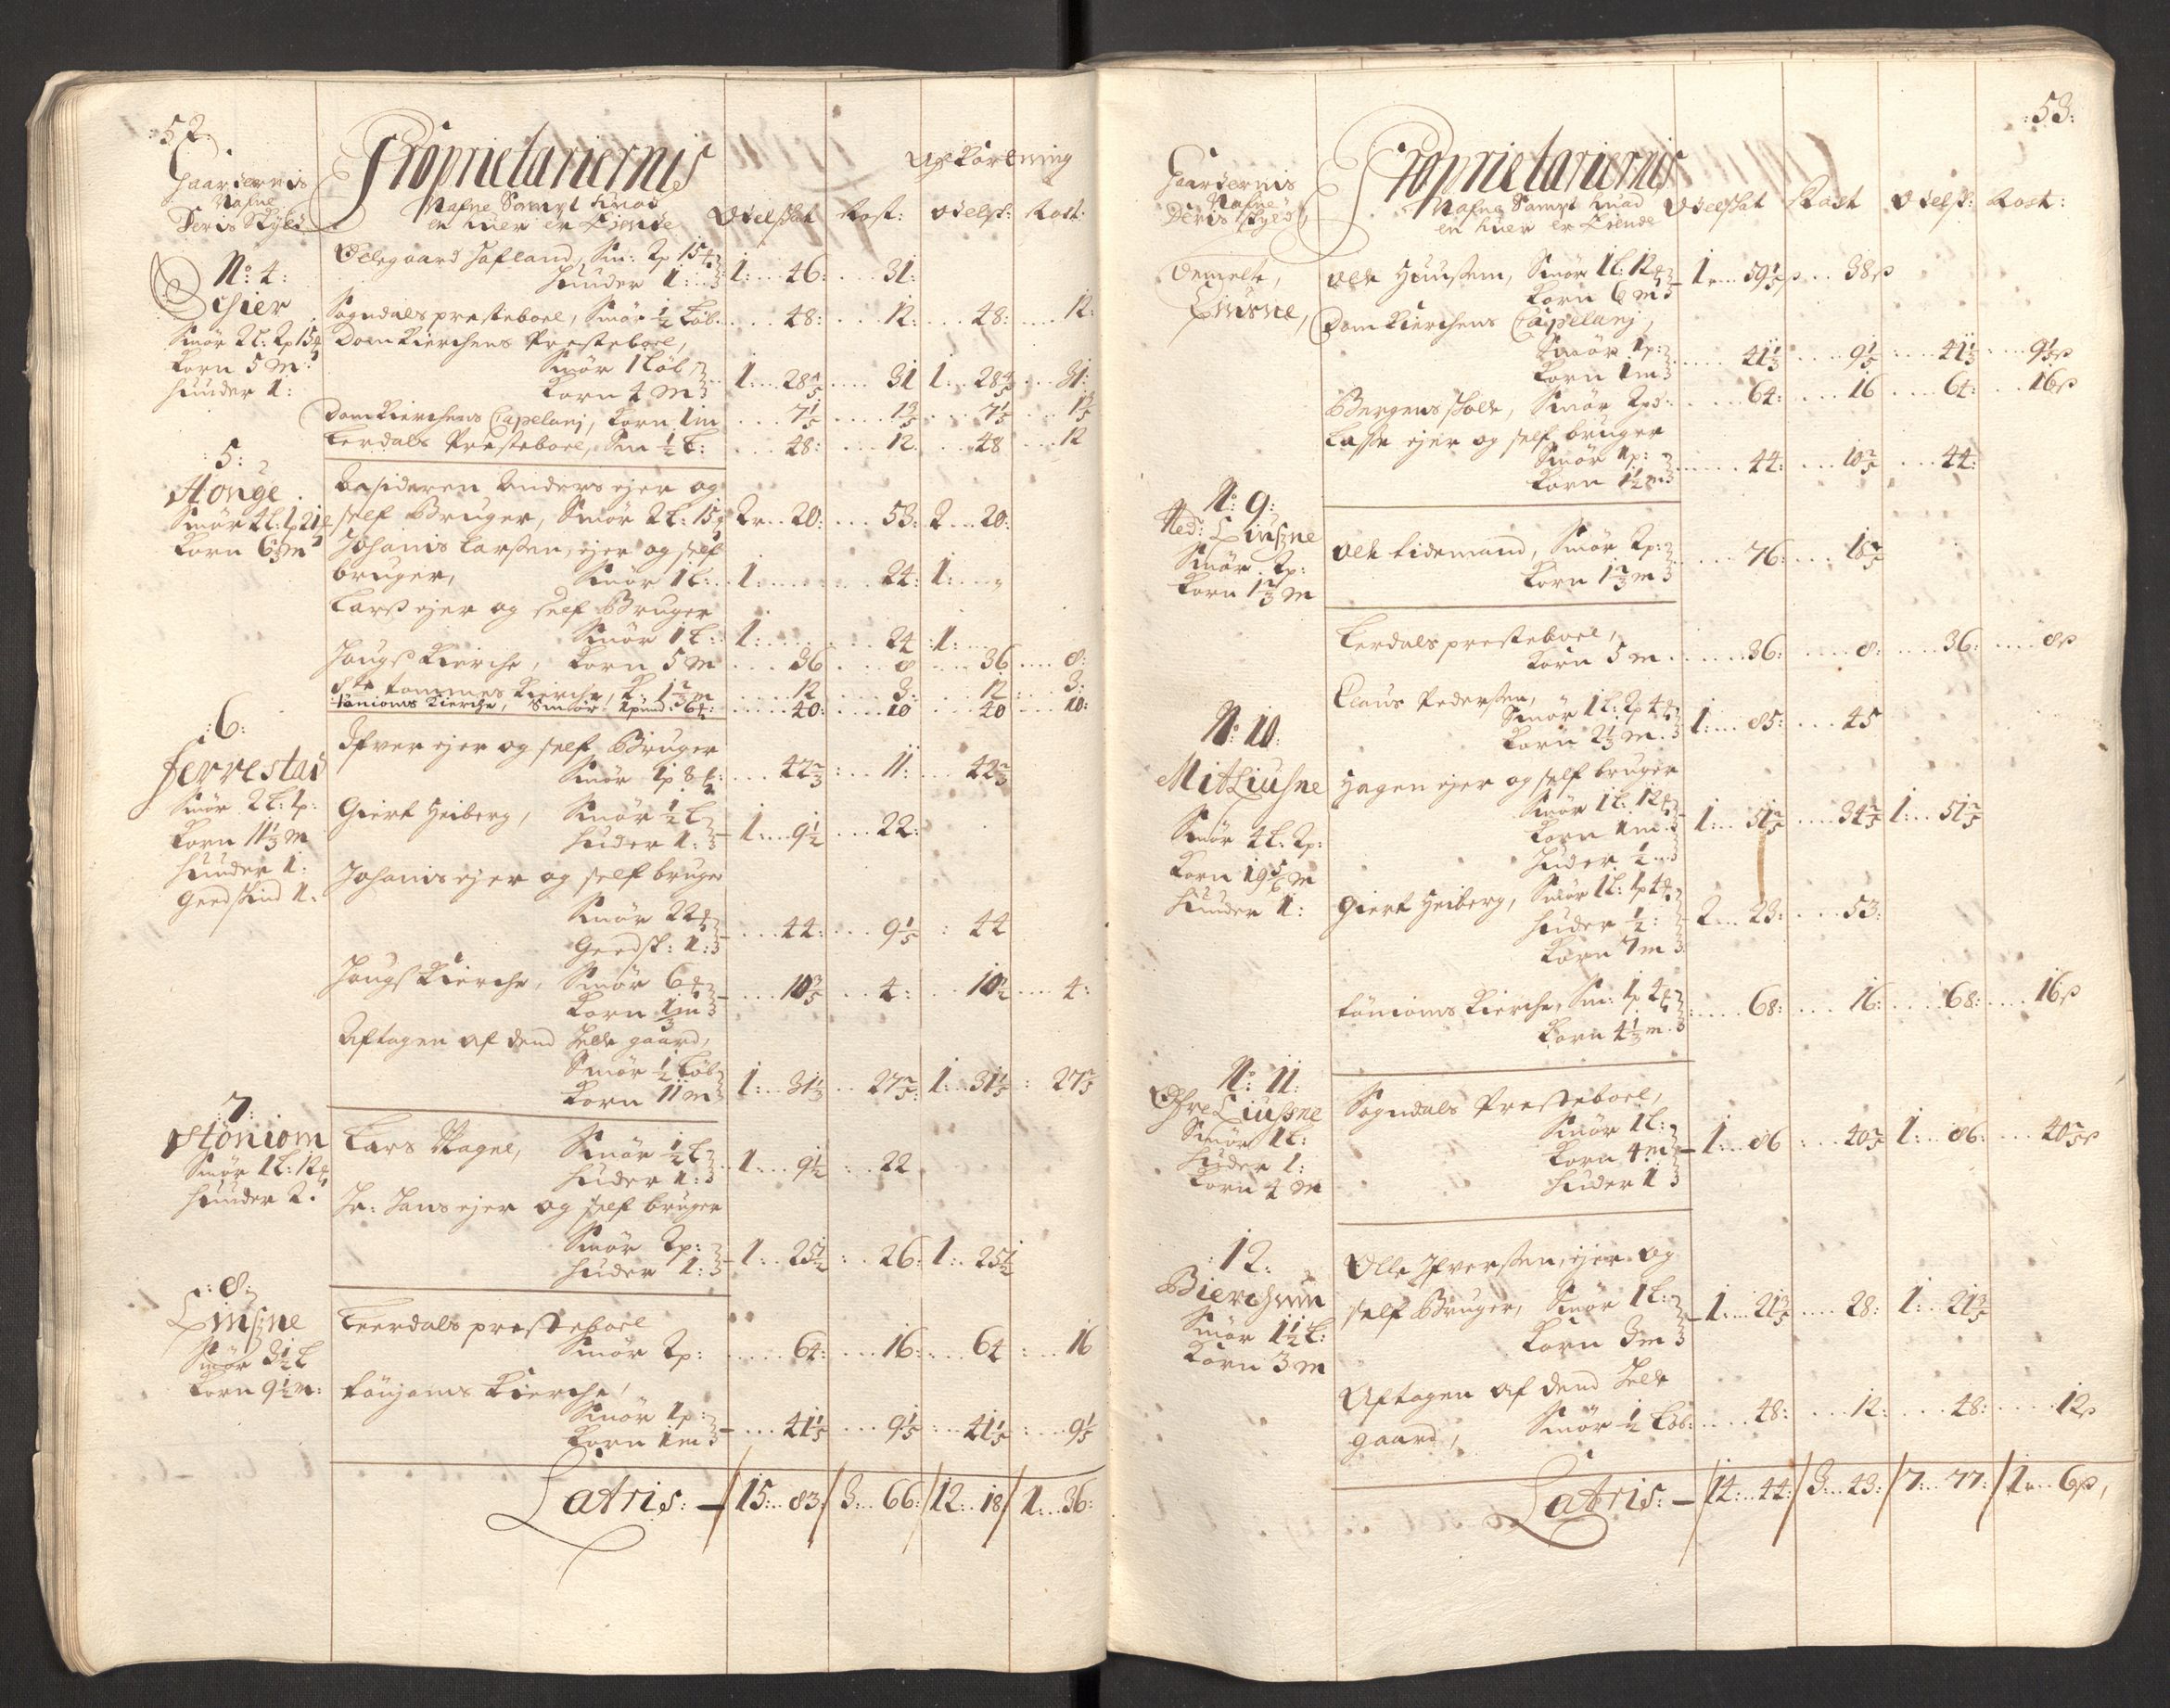 :52:
Gaardernis
Nafne
Deris Skyld
Proprietariernis
Nafne Sampt huad
en huer er Eiende
Odelskat Rost:
Afkortning
Odelsk: Rost:
N: 4:
Schier
Smør 2 L: 2 p 15 [mk]
Korn 5 m:
Huuder 1:
Sm: 2 p 15
Huuder 1: 1: 46: 31:
Sogndals presteboel, Smør ½ Løb: 48: 12: 48: 12:
Domkierchens Presteboel,
Smør 1 Løb
Korn 4 m 1: 28 4/5 31 1: 28 4/5 31:
Domkierchens Capelanj, Korn 1 m 7 1/5 1 3/5 7 1/5 1 3/5
Lerdals Presteboel, Sm ½ L: 48: 12. 48 12
:5:
Stonge
Korn 6 ⅔ m
Anders ejer og
self Bruger, Smør 2 L: 15 2 20: 53: 2 20:
Johanis Larsen, ejer og self
bruger, Smør 1 L: 1: 24: 1:
Lars ejer og self Bruger
Smør 1 L: 1: 24 1:
Hougs Kierche, Korn 5 m 36 8 36 8:
Kierche, K: 1 ⅔ m 12 3: 12 3:
Tønioms Kierche, Smør 1 pund: 6 40: 10 40 10:
:6:
Ferrestad
Smør 2 L: 1 p:
Korn 11 ⅓ m
Huuder 1:
Geedskind 1:
Ifver ejer og self Bruger
Smør 1 p 8 42 ⅔ 11: 42 ⅔
Giert Heiberg, Smør ½ L
Huder 1: 1: 9 ½ 22:
Johanis ejer og self bruger
Smør 22
Geedsk: 1: 44: 9 1/5 44
Hougs Kierche, Smør 6
Korn ⅓ m 10 4: 10 ½ 4:
Aftagen af dend Øde gaard,
Smør ½ Løb
Korn 11 m 1: 31 27 1: 31 27
:7:
Stöniom
Smør 1 L: 12
Huuder 2:
Lars Skagne, Smør ½ L
Huder 1: 1: 9 ½ 22
Hr: Hans ejer og self bruger
Smør 2 p:
Huder 1: 1: 25 ½ 26: 1: 25 ½
:8:
Liusne
Smør 3 ½ L
Korn 9 ½ m:
Leerdals presteboel
Smør 2 p: 64: 16: 64 16
Tönjoms Kierche,
Smør 1 p:
Korn 1 m 41 1/5 9 1/5 41 1/5 9 1/5
Latris: 15: 83: 3: 66: 12: 18: 1: 36:
:53:
Gaardernis
Nafne
Deris Skyld,
Proprietariernis
Nafne Sampt huad
en huer er Eiende
Odelskat Rost Odelsk: Rost:
Bemelte,
Liusne,
Ole Huusem, Smør 1 L: 12
Korn 6 m 1 59 ½ 38 ß
Domkierchens Capelanj,
Smør 1 p:
Korn 1 m 41 9 1/5 41 9 1/5 ß
Bergens skole, Smør 2 p 64: 16 64: 16 ß
Lasse ejer og self bruger
Smør 1 p:
Korn 1 ½ m 44: 10 2/5 44:
N: 9:
Ned: Liusne
Smør: 2 p:
Korn 1 ⅔ m
Ole Tidemand, Smør 2 p:
Korn 1 ⅔ m 76: 18
Lerdals presteboel,
Korn 5 m 36: 8: 36: 8 ß
N: 10:
Mit Liusne
Smør 4 L: 2 p:
Korn 19 5/6 m
Huuder 1:
Claus Pedersen,
Smør 1 L: 2 p 4
Korn 2 ⅓ m 1: 85: 45
Hagen ejer og self bruger
Smør 1 L: 12
Korn 1 m
Huder ½ 1: 51 2/5 34 2/5 1: 51 2/5
Giert Heiberg, Smør 1 L: 1 p 4
Huder ½:
Korn 7 m 2 23: 53:
Tönioms Kierche, Sm: 1 p 4
Korn 4 ½ m 68: 16: 68: 16 ß
N: 11:
Öfre Liusne
Smør 1 L:
Huder 1:
Korn 4 m
Sogndals Presteboel,
Smør 1 L:
Korn 4 m
Huder 1 1: 86 40 1: 86: 40 ß
:12:
Bierchum
Smør 1 ½ L:
Korn 3 m
Olle Ifversen, ejer og
self Bruger, Smør 1 L:
Korn 3 m 1: 21 3/5 28: 1: 21 3/5
Aftagen af dend Øde
gaard, Smør ½ Løb: 48: 12: 48: 12 ß
Latris: 14: 44: 3: 43: 7: 77: 1 6 ß,